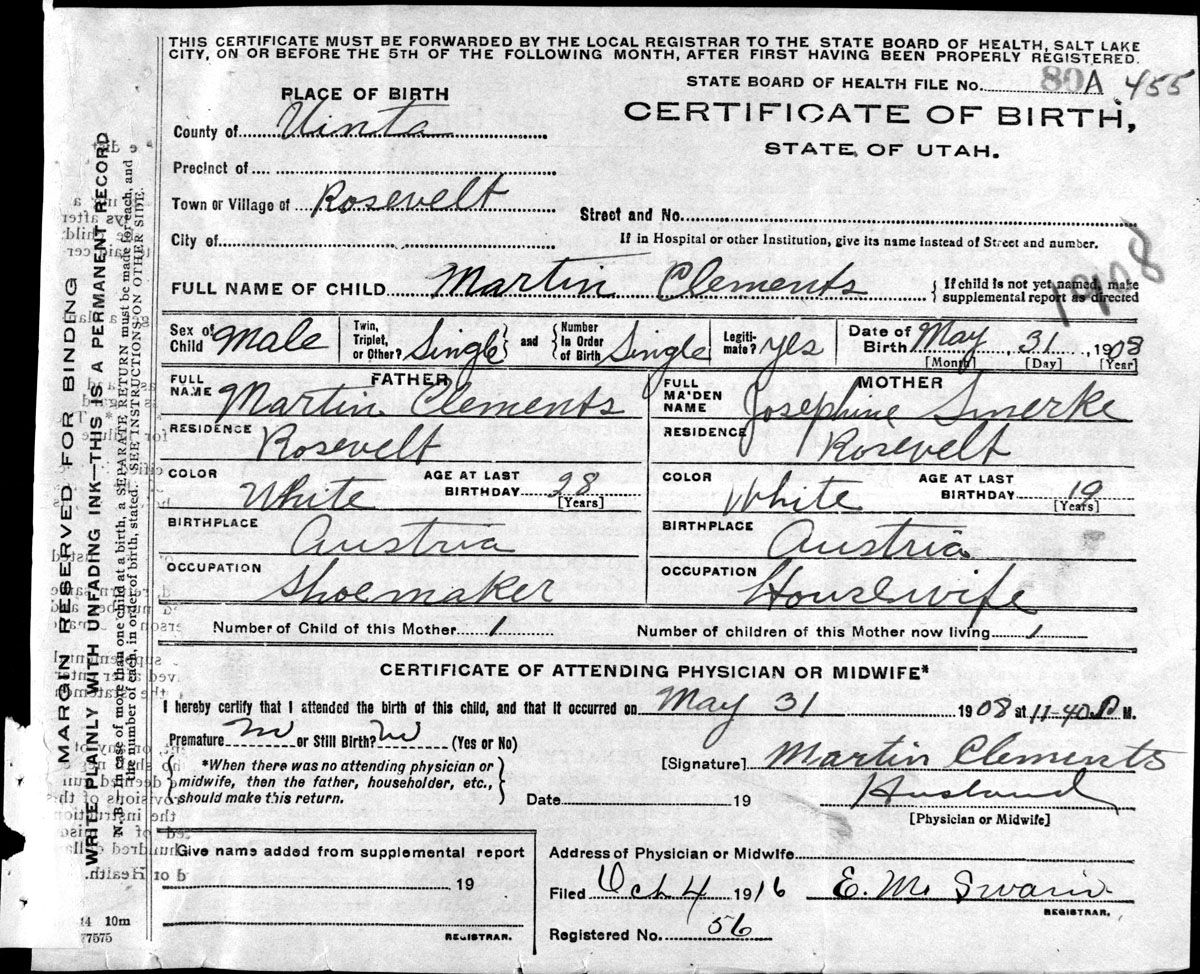 THIS CERTIFICATE MUST BE FORWARDED BY THE LOCAL REGISTRAR TO THE STATE BOARD OF HEALTH, SALT LAKE
CITY, ON OR BEFORE THE 5TH OF THE FOLLOWING MONTH, AFTER FIRST HAVING BEEN PROPERLY REGISTERED.
STATE BOARD OF HEALTH FILE No. 80A 455
PLACE OF BIRTH
CERTIFICATE OF BIRTH,
STATE OF UTAH.
County of Uinta
Precinct of
Town or Village of Rosevelt
Street and No.
City of
If in Hospital or other Institution, give its name instead of Street and number.
1908
FULL NAME OF CHILD Martin Clements
{ If child is not yet named, make
supplemental report as directed
Sex of Child Male
Twin, Triplet, or Other? Single } and { Number In Order of Birth Single
Legiti-mate? yes
Date of Birth May, 31, 1908
[Month] [Day] [Year]
FATHER
FULL NAME Martin Clements
MOTHER
FULL MAIDEN NAME Josephine Smerke
RESIDENCE Rosevelt
RESIDENCE Rosevelt
COLOR White AGE AT LAST BIRTHDAY 28 [Years]
COLOR White AGE AT LAST BIRTHDAY 19 [Years]
BIRTHPLACE Austria
BIRTHPLACE Austria
OCCUPATION Shoemaker
OCCUPATION Housewife
Number of Child of this Mother 1
Number of children of this Mother now living 1
CERTIFICATE OF ATTENDING PHYSICIAN OR MIDWIFE*
I hereby certify that I attended the birth of this child, and that it occurred on May 31 1908 at 11-40 P M.
Premature or Still Birth? (Yes or No)
{ *When there was no attending physician or
midwife, then the father, householder, etc.,
should make this return. }
[Signature] Martin Clements
Date 19
Husband
[Physician or Midwife]
Give name added from supplemental report
19
REGISTRAR.
Address of Physician or Midwife
Filed Oct 4 1916 E. M. Swain
REGISTRAR.
Registered No. 56
MARGIN RESERVED FOR BINDING
WRITE PLAINLY WITH UNFADING INK—THIS IS A PERMANENT RECORD
N. B.—In case of more than one child at a birth, a SEPARATE RETURN must be made for each, and
the number of each, in order of birth, stated. SEE INSTRUCTIONS ON OTHER SIDE.
14 10m
77575